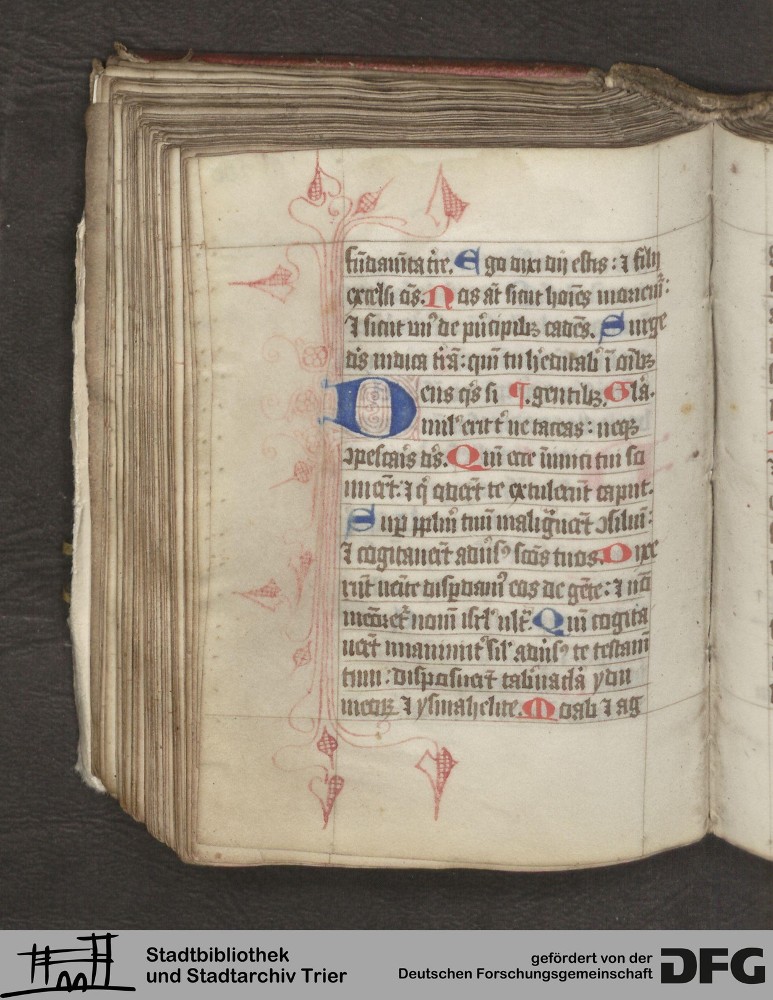 fūdam̄ta t̄re. Ego dixi dij estis: ⁊ filij
excelsi oēs. Vos āt sicut hoīes moriem̄:
⁊ sicut un⁹ de p̄ncipibꝫ cadetꝭ. Surge
d̄s iudica t̄rā: qm̄ tu h̓editab̓ ī oībꝫ
Deus q̄s si ¶. gentibꝫ. Glā.
mil̓ erit t̓ ne taceas: neqꝫ
ꝯpescar̓ d̄s. Qm̄ ecce inimici tui so
nuer̄t: ⁊ q̓ oder̄t te extulerūt caput.
Sup̱ pplm̄ tuū malig̓uer̄t ꝯsiliū:
⁊ cogitauer̄t adūs⁹ sc̄os tuos. Dixe
rūt uenite disp̱dam⁹ eos de gēte: ⁊ nō
memoret̓ nomē isrl̓ ult̓. Qm̄ cogita
uer̄t unanimit̓ sil̓ adūs⁹ te testam̄
tum: disposuer̄t tab̓nacl̄a ydu
meoꝝ ⁊ ysmahelite. Moab ⁊ ag
Stadtbibliothek
und Stadtarchiv Trier
gefördert von der
Deutschen Forschungsgemeinschaft
DFG